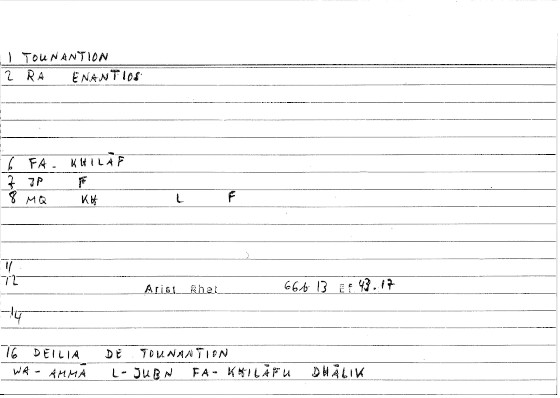 1 TOUNANTION
2 RA ENANTIOS
6 FA- KHILĀF
7 JP F
8 MQ KH L F
11
12 Arist Rhet 66b 13 Ef 43.17
14
16 DEILIA DE TOUNANTION
WA- AMMĀ L-JUBN FA- KHILĀFU DHĀLIK